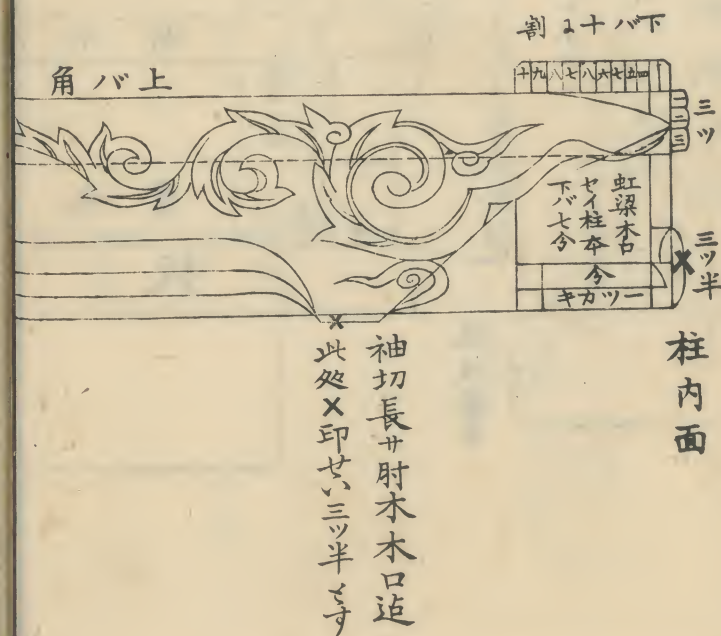 下バ十ヨ割
十九八七八六七五四
一二三
三ツ
上バ角
虹梁木口
セイ柱本
下バ七分
今
一ツカキ
三ツ半
×
柱内面
袖切長サ肘木木口迠
×
此処×印せい三ツ半とす